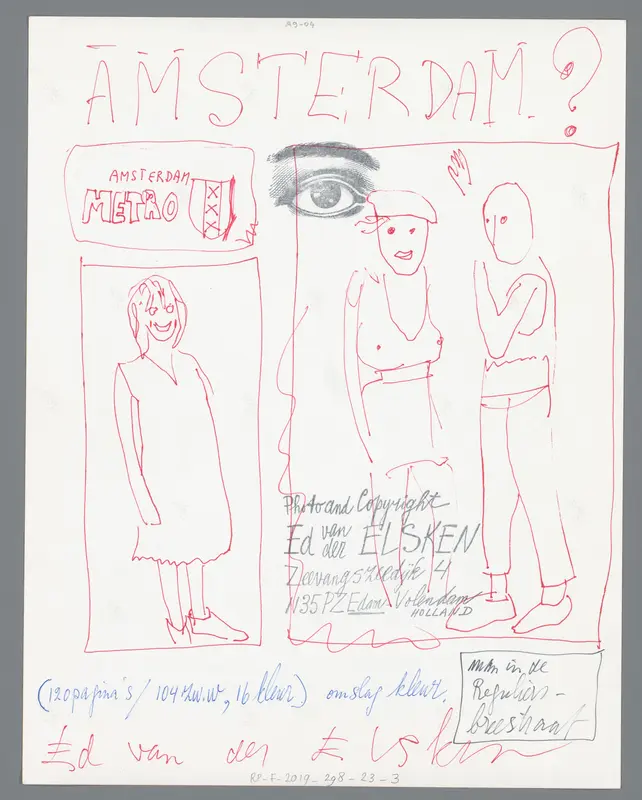 AMSTERDAM.?
AMSTERDAM
METRO
XXX
Photo and Copyright
Ed van der ELSKEN
Zeevangszeedijk 4
1135 PZ Edam-Volendam
HOLLAND
man in de
Reguliers-
breestraat
(120 pagina's / 104 zw.w, 16 kleur) omslag kleur.
Ed van der Elsken
RP-F-2019-298-23-3